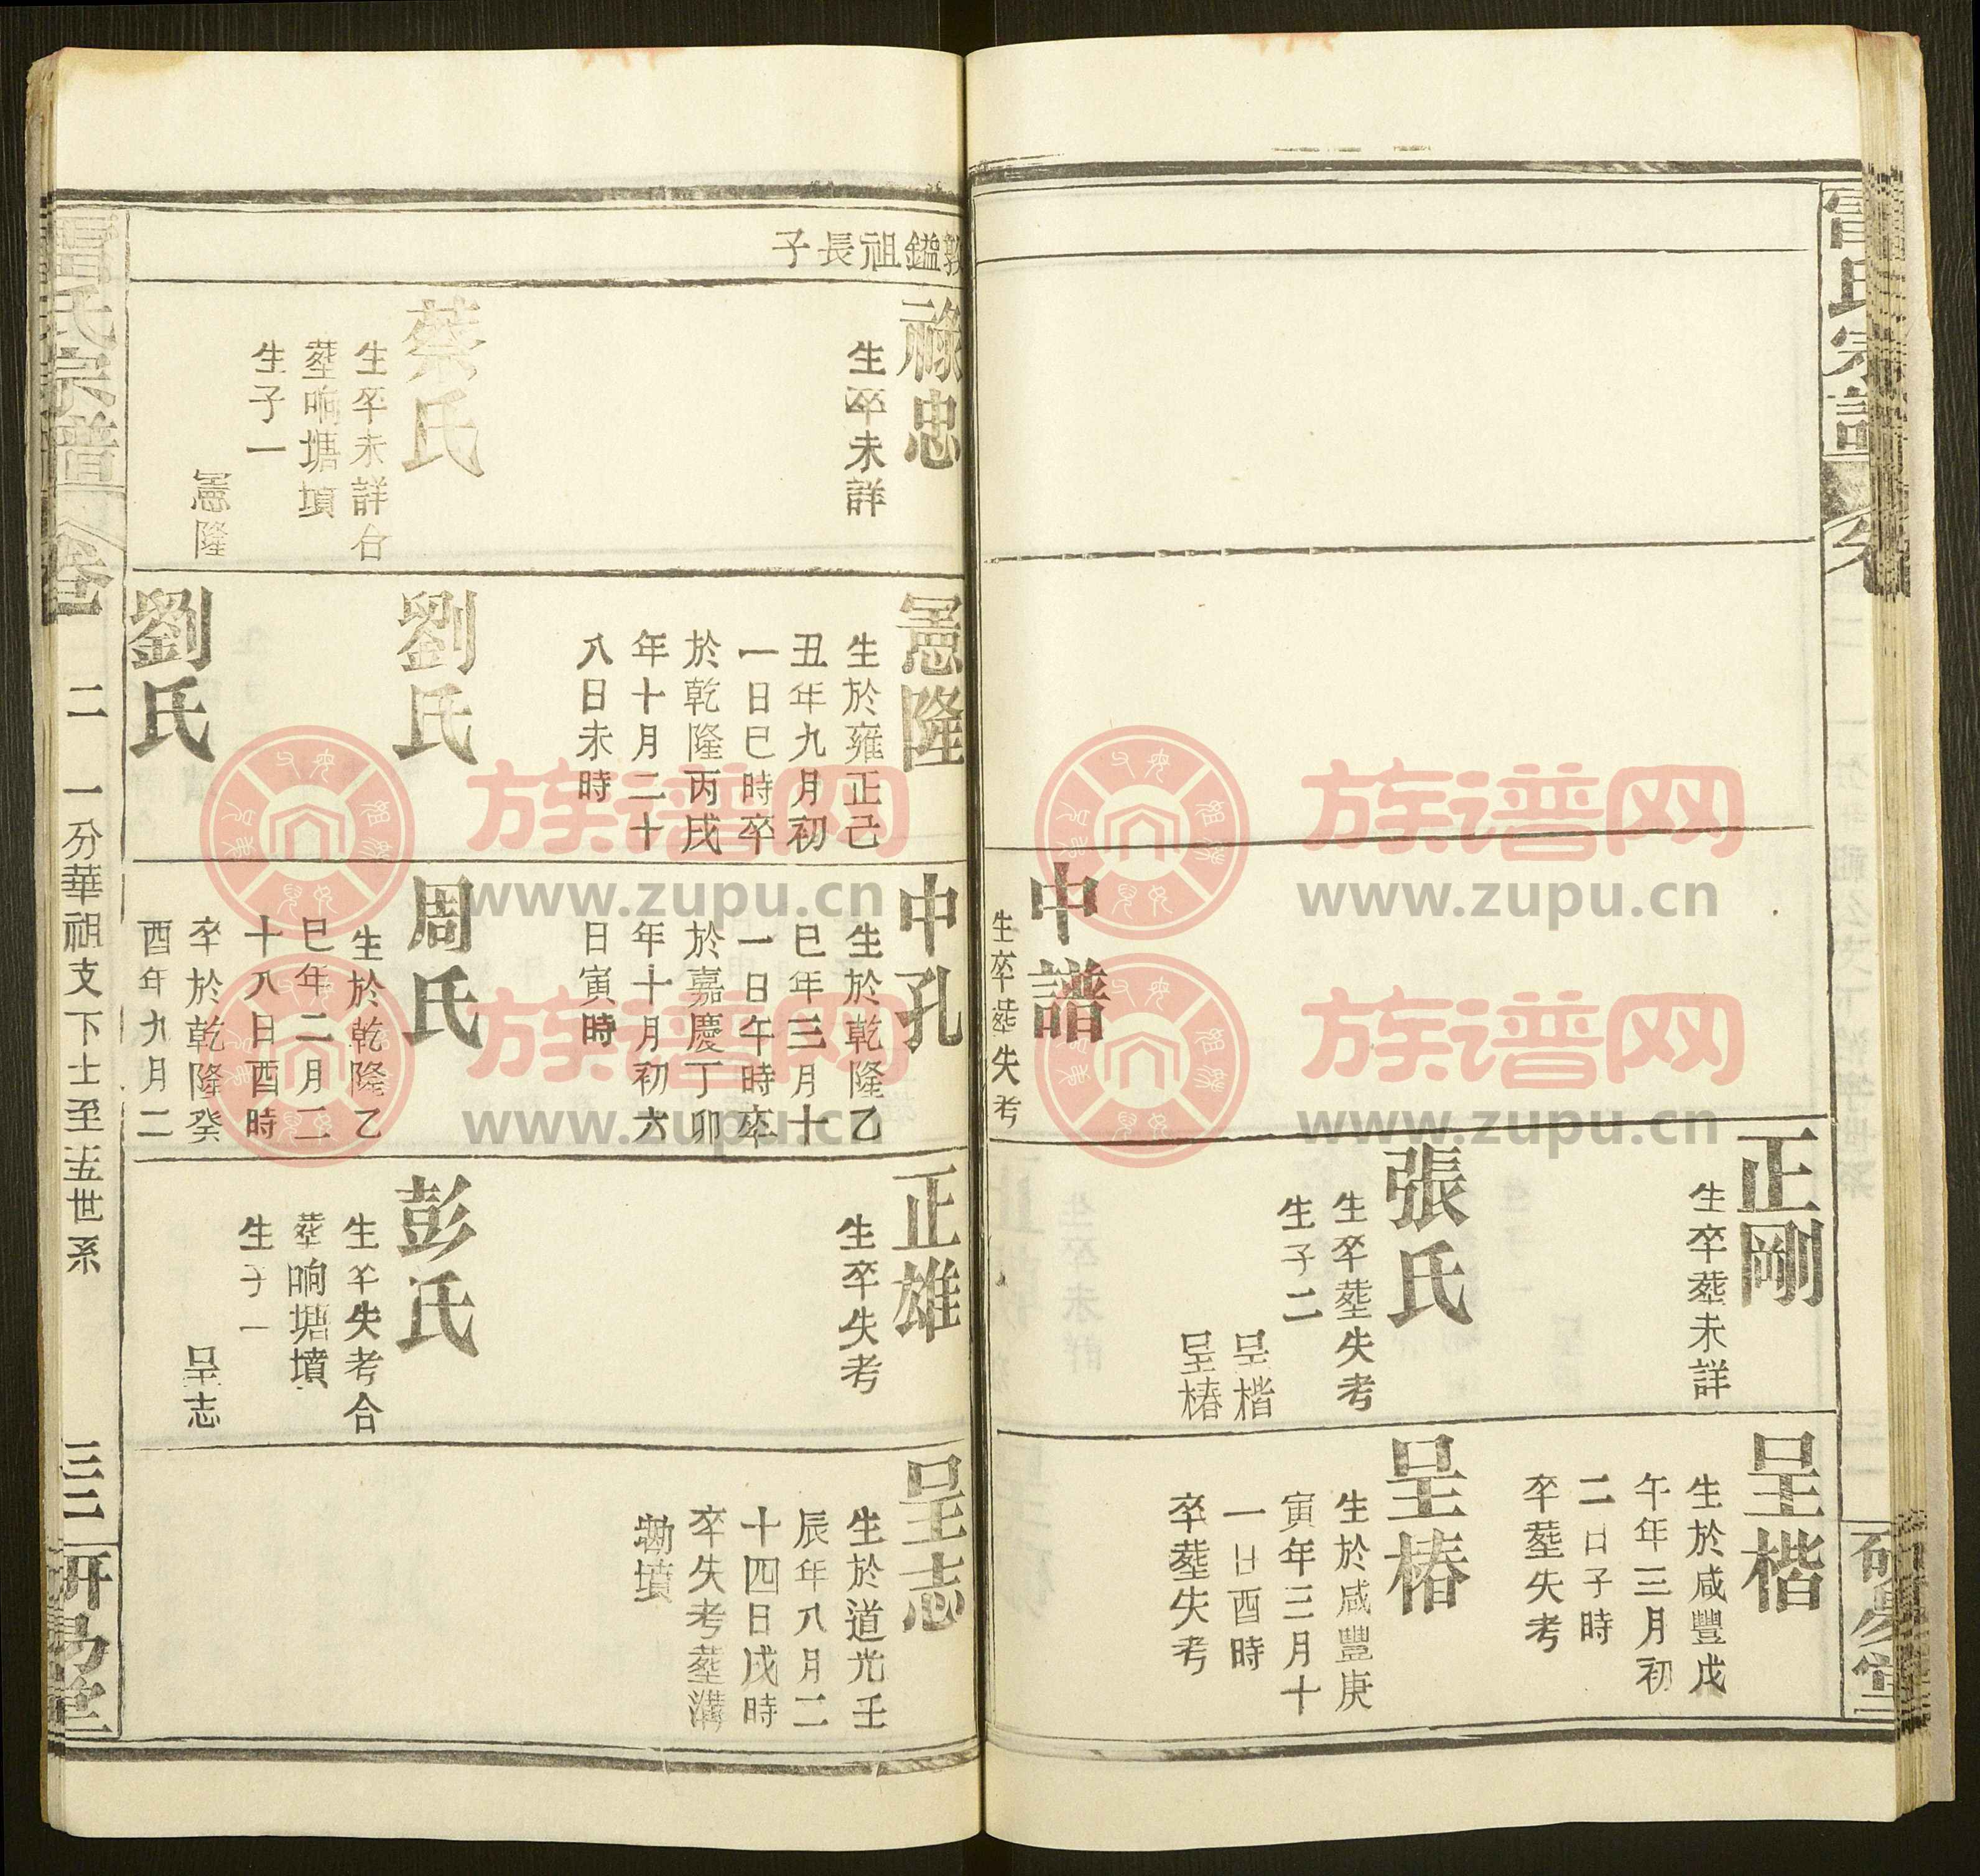 正剛
生卒塟未詳
張氏
生卒塟失考
生子二
呈楷
呈椿
中譜
生卒塟失考
呈楷
生於咸豐戊
午年三月初
二日子時
卒塟失考
呈椿
生於咸豐庚
寅年三月十
一日酉時
卒塟失考
敦鎰祖長子
祿忠
生卒未詳
蔡氏
生卒未詳合
塟晌塘墳
生子一
憲隆
憲隆
生於雍正己
丑年九月初
一日巳時卒
於乾隆丙戌
年十月二十
八日未時
劉氏
劉氏
中孔
生於乾隆乙
巳年三月十
一日午時卒
於嘉慶丁卯
年十月初六
日寅時
周氏
生於乾隆乙
巳年二月二
十八日酉時
卒於乾隆癸
酉年九月二
正雄
生卒失考
彭氏
生卒失考合
塟晌塘墳
生子一
呈志
呈志
生於道光壬
辰年八月二
十四日戌時
卒失考塟溝
墈墳
氏宗譜 卷二 一分華祖支下士至五世系 三二 研易堂
族谱网
www.zupu.cn
族谱网
www.zupu.cn
族谱网
www.zupu.cn
族谱网
www.zupu.cn